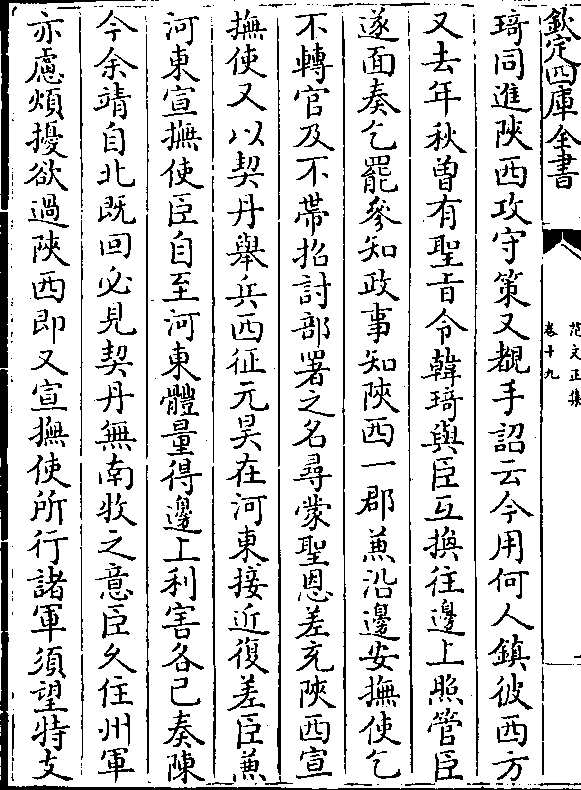 欽定四庫全書
范文正集
卷十九
琦同進陜西攻守策又覩手詔云今用何人鎮彼西方
又去年秋曾有聖旨令韓琦與臣互換往邊上照管臣
遂面奏乞罷參知政事知陜西一郡兼沿邊安撫使乞
不轉官及不帶招討部署之名尋蒙聖恩差充陜西宣
撫使又以契丹舉兵西征元昊在河東接近復差臣兼
河東宣撫使臣自至河東體量得邊上利害各已奏陳
今余靖自北既回必見契丹無南牧之意臣久住州軍
亦慮煩擾欲過陜西即又宣撫使所行諸軍須望特支